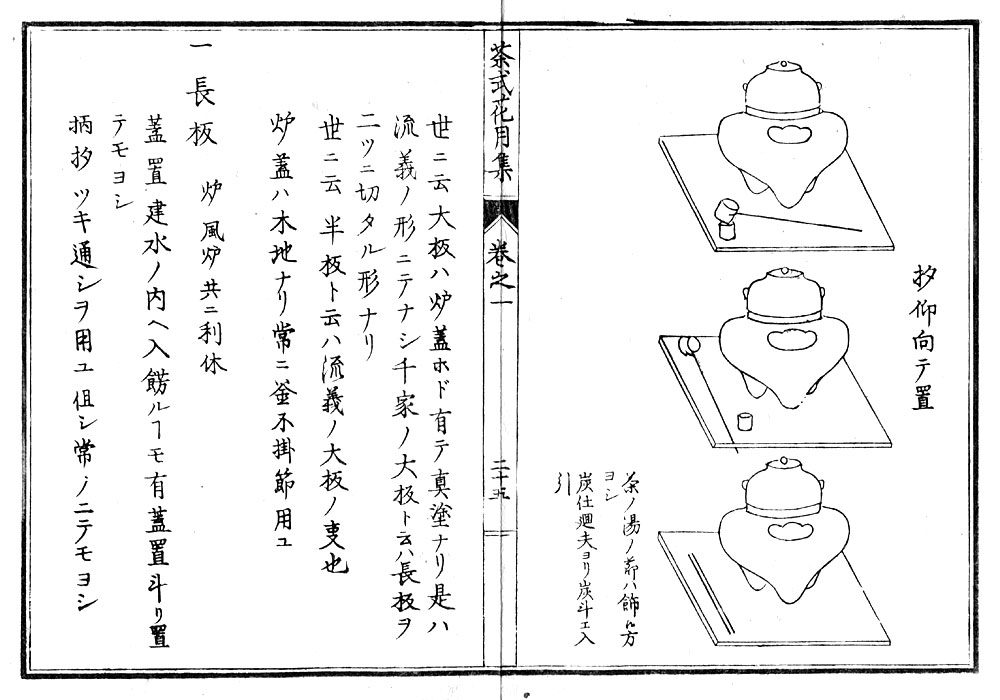 杓仰向テ置
茶ノ湯ノ節ハ飾ル方
ヨシ
炭仕廻夫ヨリ炭斗エ入
引
茶式花月集
巻之一
二十五
世ニ云大板ハ炉蓋ホド有テ真塗ナリ是ハ
流義ノ形ニテナシ千家ノ大板ト云ハ長板ヲ
二ツニ切タル形ナリ
世ニ云半板ト云ハ流義ノ大板ノ叓也
炉蓋ハ木地ナリ常ニ釜不掛節用ユ
一長板 炉風炉共ニ利休
蓋置建水ノ内ヘ入餝ルヿモ有蓋置斗リ置
テモヨシ
柄杓ツキ通シヲ用ユ但シ常ノニテモヨシ